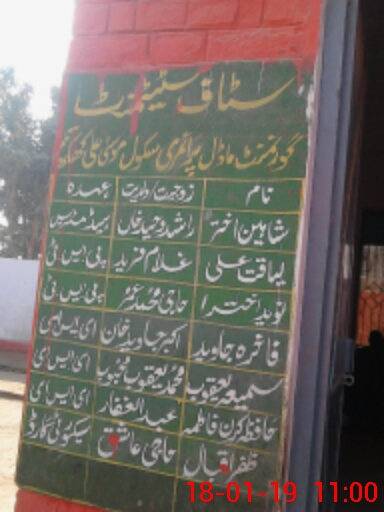 سٹاف سٹیٹمنٹ
گورنمنٹ ماڈل پرائمری سکول موسیٰ علی
نام زوجیت/ولدیت عہدہ
شاہین اختر راشد وحید خاں ہیڈمسٹریس
لیاقت علی غلام فرید پی ایس ٹی
نوید اختر حاجی محمد عمر پی ایس ٹی
فاخرہ جاوید اکبر جاوید خان ای ایس ای
سمیعہ یعقوب محمد یعقوب محبوب ای ایس ای
حافظہ کرن فاطمہ عبدالغفار ای ایس ای
ظفر اقبال حاجی عاشق سیکورٹی گارڈ
18-01-19 11:00